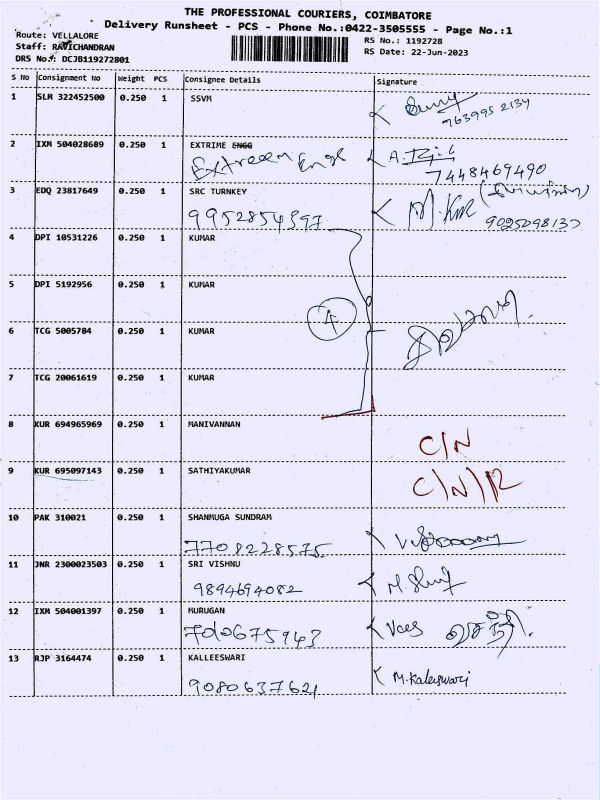 THE PROFESSIONAL COURIERS, COIMBATORE
Delivery Runsheet - PCS - Phone No.:0422-3505555 - Page No.:1
Route: VELLALORE
RS No.: 1192728
Staff: RAVICHANDRAN
RS Date: 22-Jun-2023
DRS No.: DCJB119272801
S No Consignment No Weight PCS Consignee Details Signature
1 SLM 322452500 0.250 1 SSVM
763995 2134
2 IXM 504028689 0.250 1 EXTRIME ENGG
Extreem Engg
7448469490
3 EDQ 23817649 0.250 1 SRC TURNKEY
9952854397 9025098137
4 DPI 10531226 0.250 1 KUMAR
5 DPI 5192956 0.250 1 KUMAR
4
6 TCG 5005784 0.250 1 KUMAR
7 TCG 20061619 0.250 1 KUMAR
8 KUR 694965969 0.250 1 MANIVANNAN
C/N
9 KUR 695097143 0.250 1 SATHIYAKUMAR
C/N/R
10 PAK 310021 0.250 1 SHANMUGA SUNDRAM
7708228575
11 JNR 2300023503 0.250 1 SRI VISHNU
9894694082
12 IXM 504001397 0.250 1 MURUGAN
13 RJP 3164474 0.250 1 KALLEESWARI
M.Kaleswari
9080637621